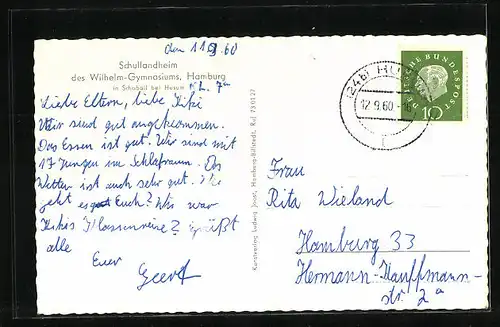 den 11.9.60
Schullandheim
des Wilhelm-Gymnasiums, Hamburg
in Schobüll bei Husum Kl. 7a
Liebe Eltern, liebe Kiki
Wir sind gut angekommen.
Das Essen ist gut. Wir sind mit
17 Jungen im Schlafraum. Das
Wetter ist auch sehr gut. Wie
geht es Euch? Wie war
Kikis Klassenreise? Grüßt
alle
Euer
Geert
Kunstverlag Ludwig Joost, Hamburg-Billstedt, Ruf 73 01 27
(24b) HUSUM
12.9.60
DEUTSCHE BUNDESPOST
10
Frau
Rita Wieland
Hamburg 33
Hermann-Kauffmann-
str. 2a